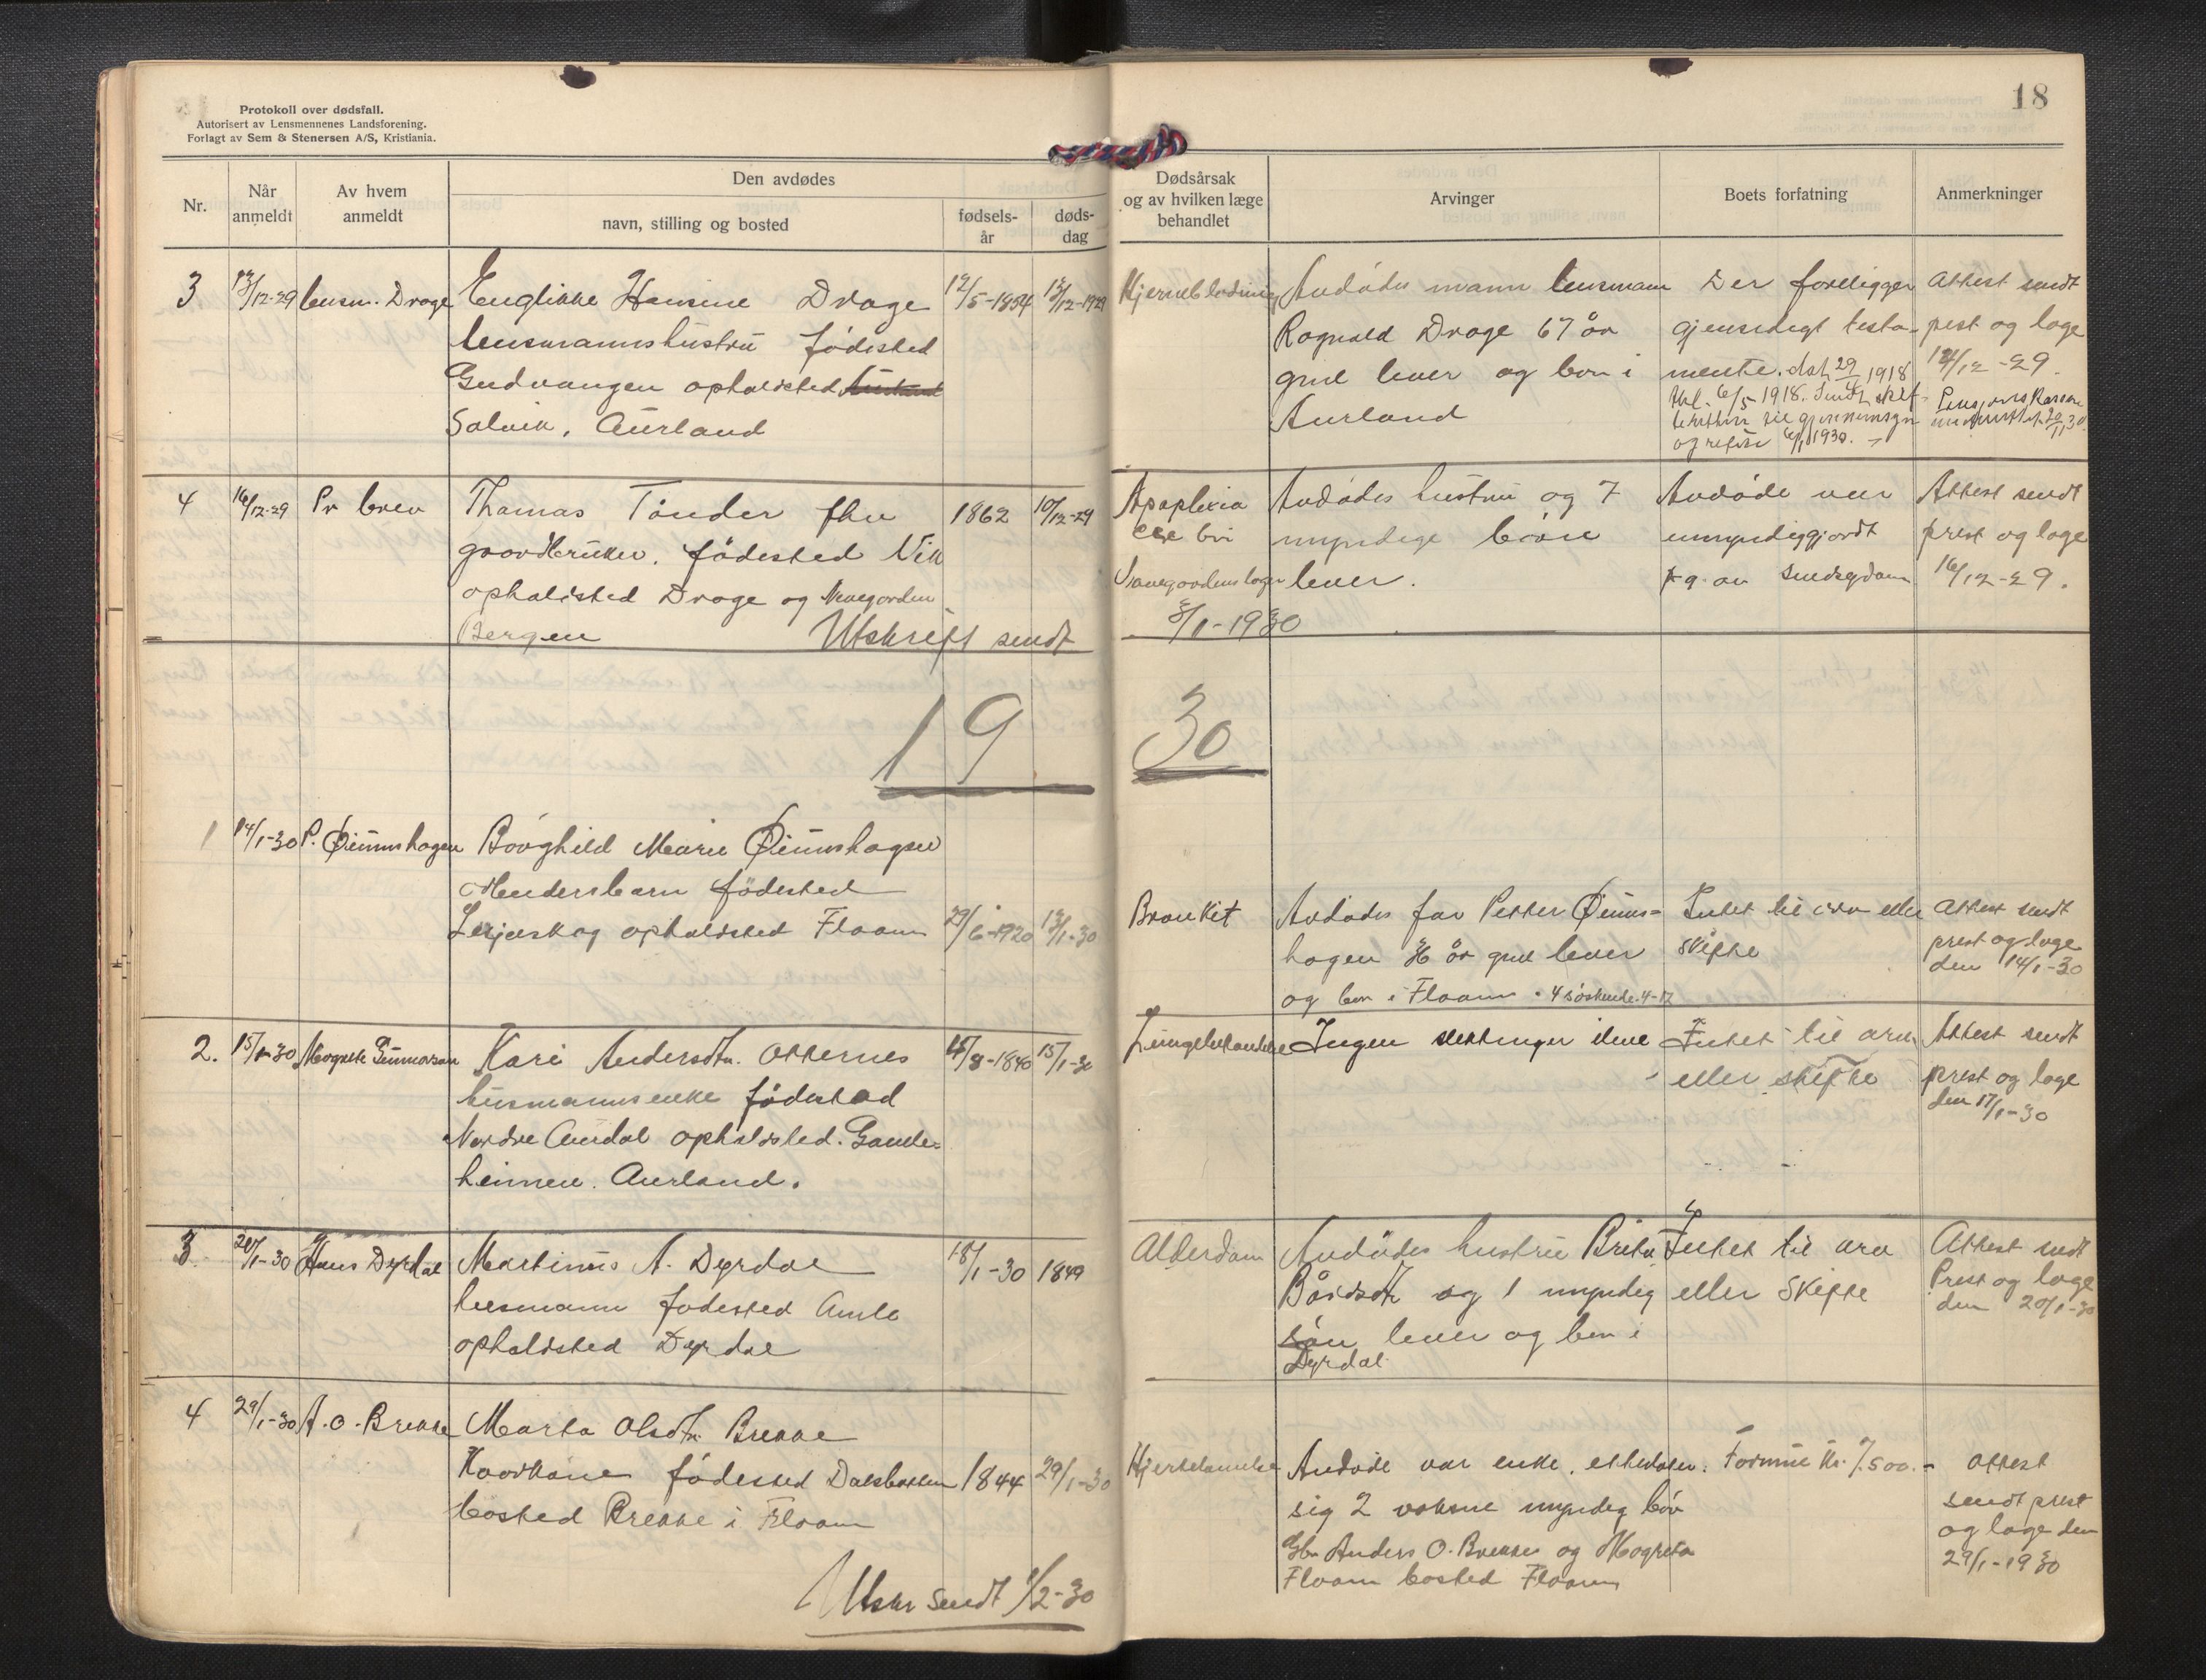 Protokoll over dødsfall.
Autorisert av Lensmennenes Landsforening.
Forlagt av Sem & Stenersen A/S, Kristiania.
18
Nr.
Når anmeldt
Av hvem anmeldt
Den avdødes
navn, stilling og bosted
fødsels-år
døds-dag
Dødsårsak og av hvilken læge behandlet
Arvinger
Boets forfatning
Anmerkninger
3
13/12-29
lensm. Drage
Englikke Hansine Drage
lensmannshustru fødested
Gudvangen opholdsted
Solvik, Aurland
12/5-1854
13/12-1929
Hjerneblødning
Avdødes mann lensmann
Ragnvald Drage 67 år
gml lever og bor i
Aurland
Der foreligger
gjensidigt testa-
mente. dat 29/4 1918
tkl. 6/5 1918. Sendt skif-
teretten til gjennemsyn
og retur 6/1 1930.
Attest sendt
prest og læge
14/12-29.
4
16/12-29
Pr brev
Thomas Tønder fhv
gaardbruker. fødested Vik
opholdsted Drage og Nevegården
Bergen
Utskrift sendt
1862
10/12-29
Apoplexia
cerebri
3/1-1930
Avdødes hustru og 7
myndige børn
lever.
Avdøde var
umyndiggjordt
p.g. av sindsygdom
Attest sendt
prest og læge
16/12-29.
19 30
1
14/1-30
P. Øimushagen
Borghild Marie Øimushagen
fødested
Lesjeskog opholdsted Flaam
29/6-1920
13/1-30
Bronkit
Avdødes far Petter Øimus=
hagen 36 år gml lever
og bor i Flaam. 4 søskende. 4-12
Intet til arv eller
skifte
Attest sendt
prest og læge
den 14/1-30
2.
15/1-30
Magrete Gunnarsen
Kari Andersdtr. Otternes
husmannsenke fødested
Nordre Aurdal opholdsted. Gamle=
heimen. Aurland.
15/8-1840
15/1-30
Lungebetændelse
Ingen slektninger ilive
Intet til arv
eller skifte
Attest sendt
prest og læge
den 17/1-30
3
20/1-30
Hans Dyrdal
Martinus A. Dyrdal
husmann fødested Amla
opholdsted Dyrdal
18/1-30
1849
Alderdom
Avdødes hustru Brita
Bårdsdtr og 1 myndig
søn lever og bor i
Dyrdal.
Intet til arv
eller skifte
Attest sendt
Prest og læge
den 20/1-30
4
29/1-30
A. O. Brekke
Marta Olsdtr. Brekke
Kårkone fødested Dalsbotten
bosted Brekke i Flaam
Utskr sendt 1/2-30
1844
29/1-30
Hjertelamelse
Avdøde var enke. etterlater
sig 2 voksne myndig bør
Gbr Anders O. Brekke og Magreta
Flaam bosted Flaam
Formue kr. 7.500.-
Attest
sendt prest
og læge den
29/1-1930